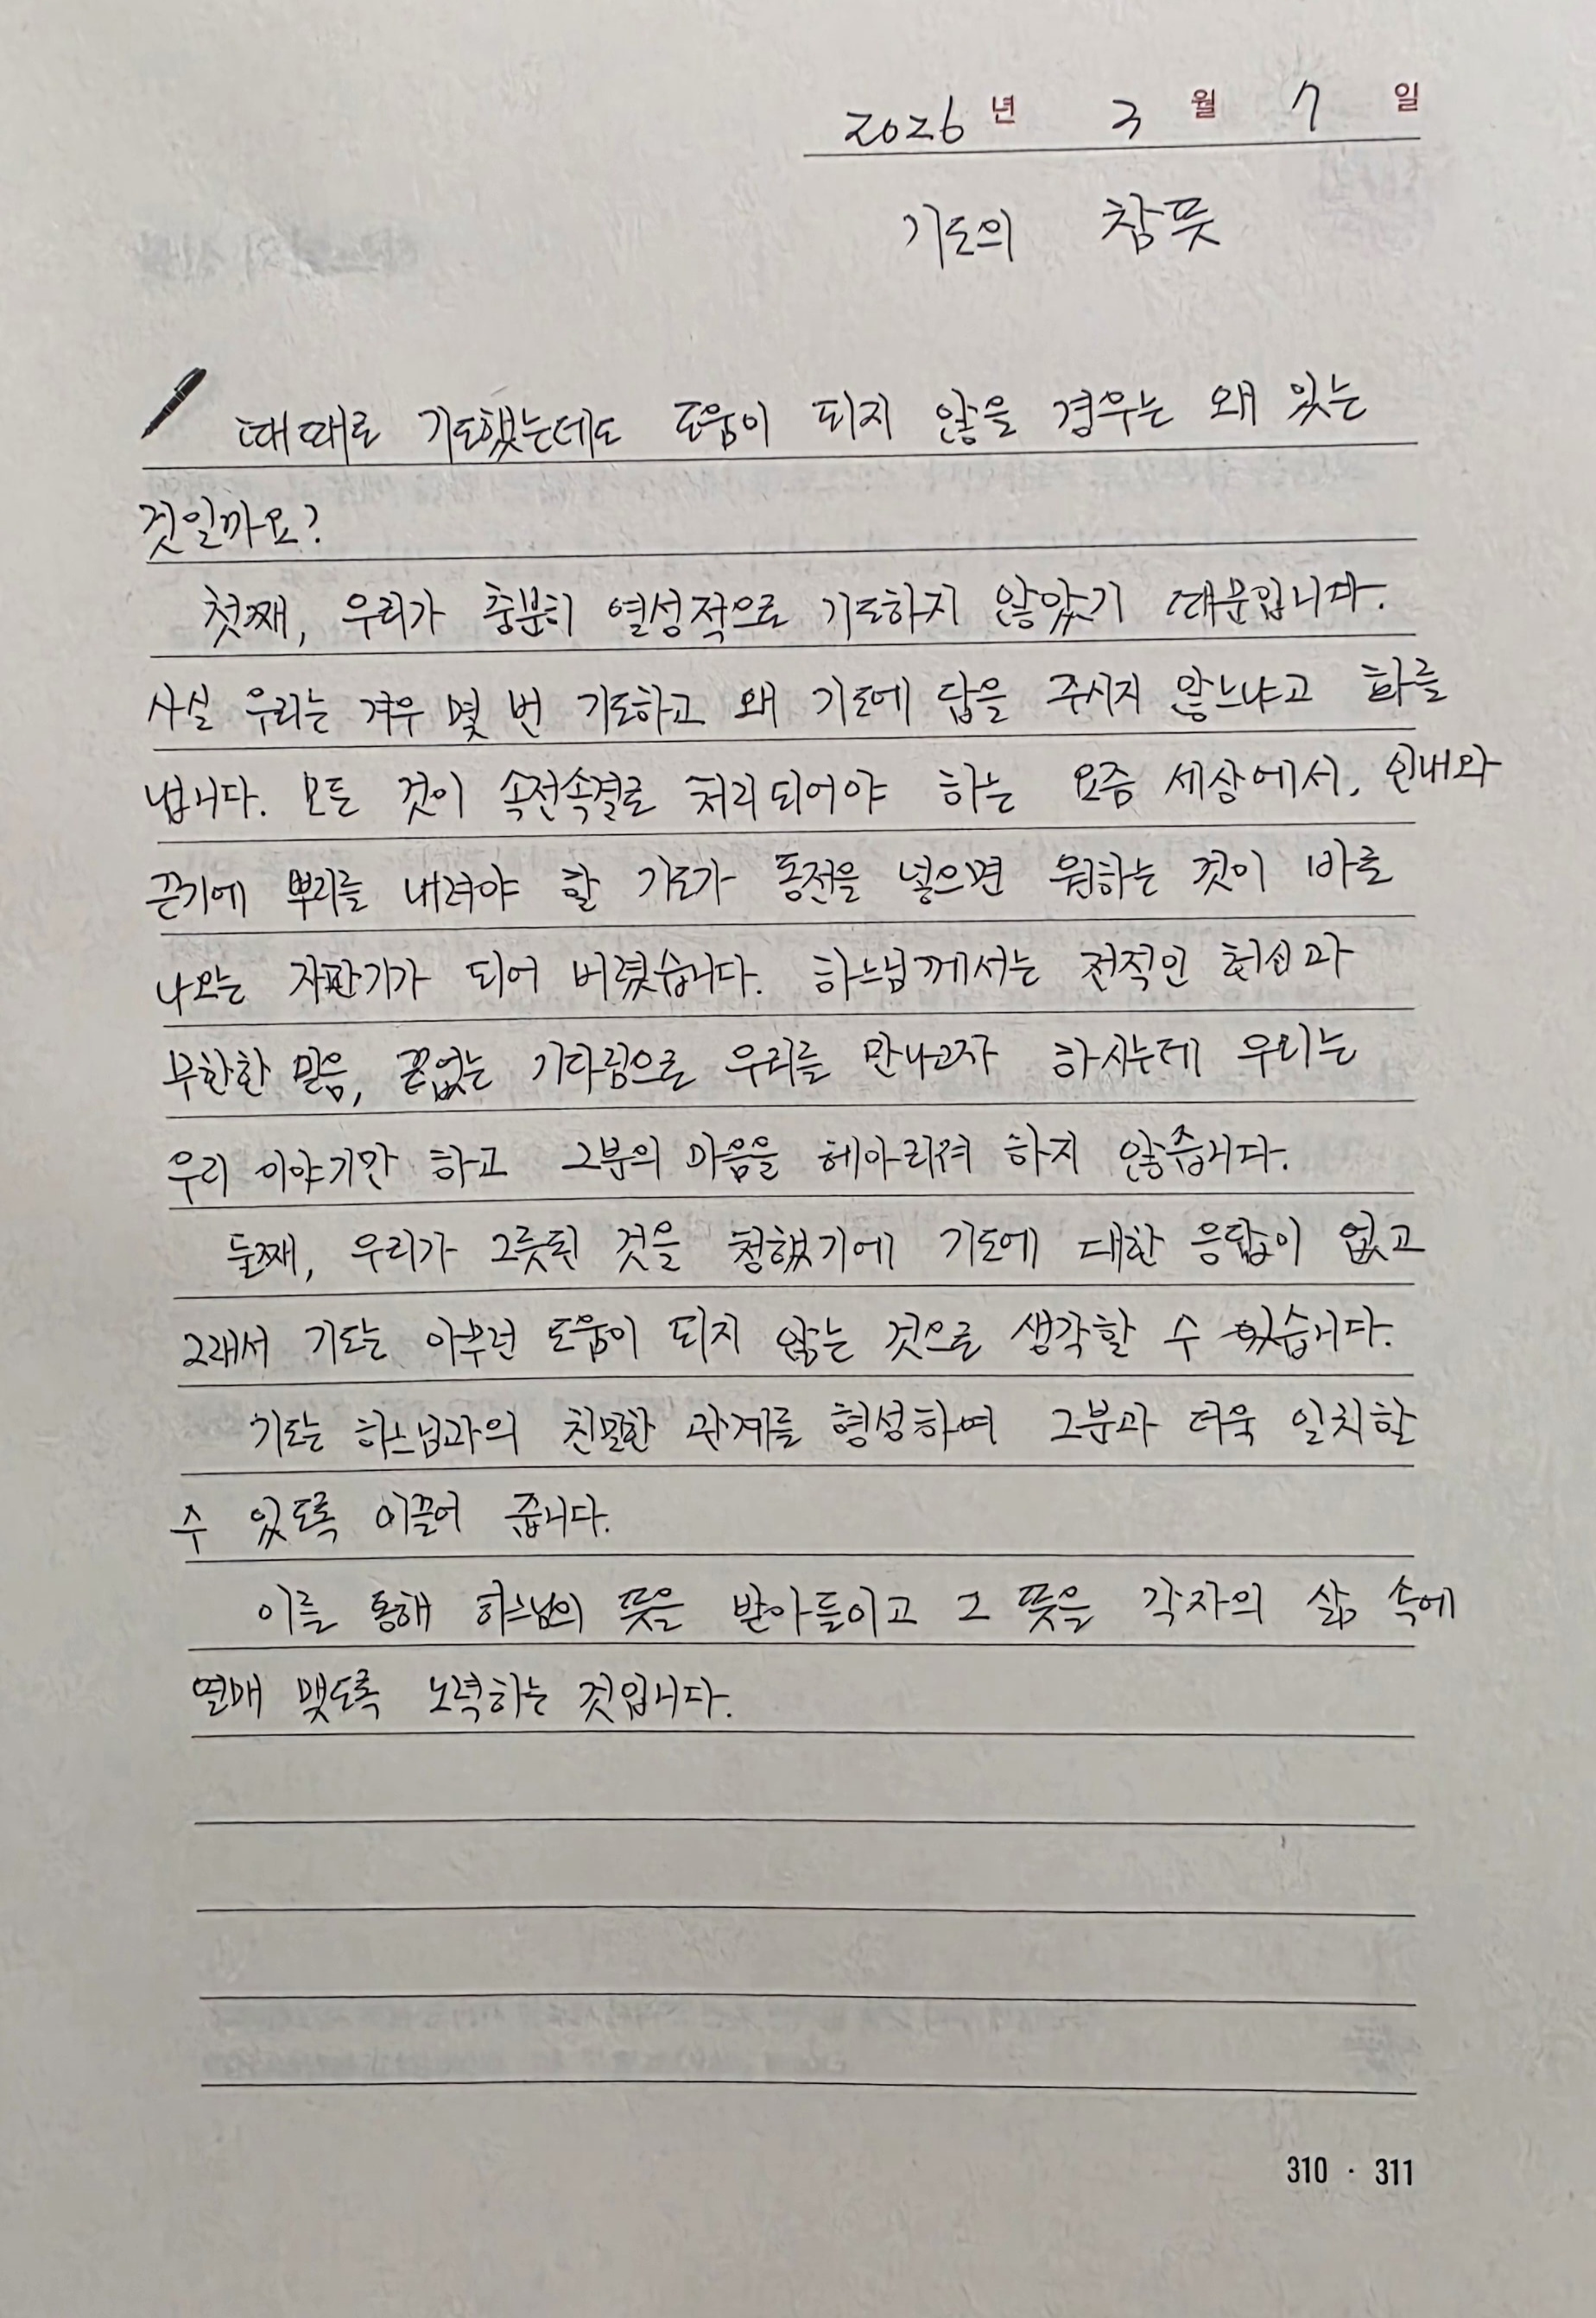 2026년 3월 7일
기도의 참뜻
때때로 기도했는데도 도움이 되지 않을 경우는 왜 있는
것일까요?
첫째, 우리가 충분히 열성적으로 기도하지 않았기 때문입니다.
사실 우리는 겨우 몇 번 기도하고 왜 기도에 답을 주시지 않느냐고 화를
냅니다. 모든 것이 속전속결로 처리되어야 하는 요즘 세상에서, 인내와
끈기에 뿌리를 내려야 할 기도가 동전을 넣으면 원하는 것이 바로
나오는 자판기가 되어 버렸습니다. 하느님께서는 전적인 헌신과
무한한 믿음, 끝없는 기다림으로 우리를 만나고자 하시는데 우리는
우리 이야기만 하고 그분의 마음을 헤아리려 하지 않습니다.
둘째, 우리가 그릇된 것을 청했기에 기도에 대한 응답이 없고
그래서 기도는 아무런 도움이 되지 않는 것으로 생각할 수 있습니다.
기도는 하느님과의 친밀한 관계를 형성하여 그분과 더욱 일치할
수 있도록 이끌어 줍니다.
이를 통해 하느님의 뜻을 받아들이고 그 뜻을 각자의 삶 속에
열매 맺도록 노력하는 것입니다.
310 · 311